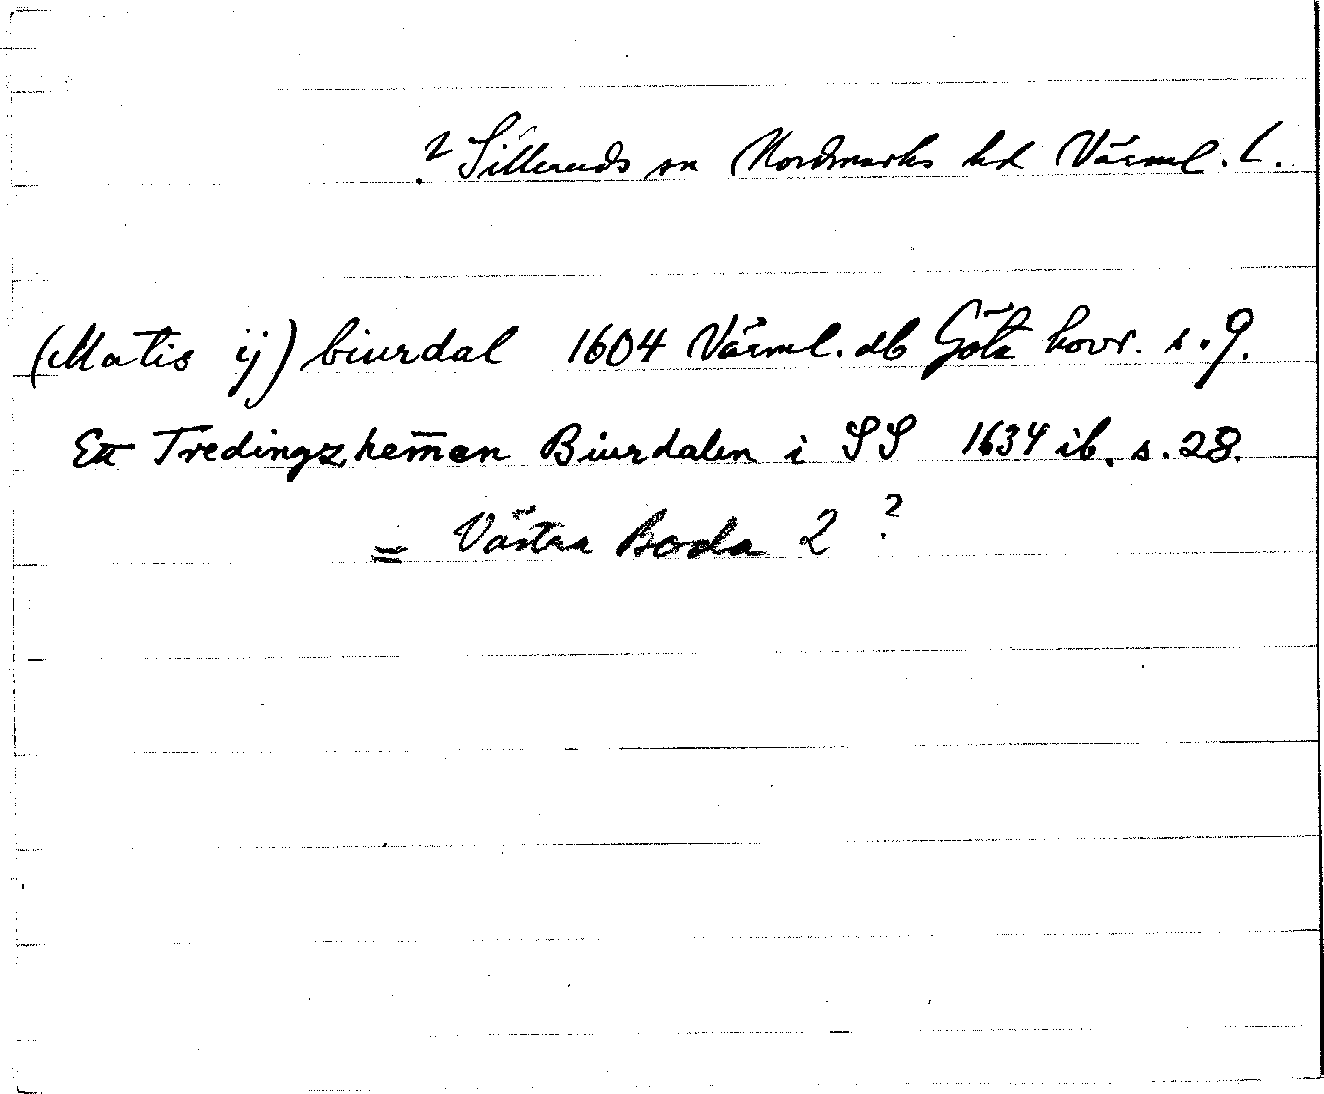 ? Silleruds sn Nordmarks hd Värml. l.
(Matis ij) biurdal 1604 Värml. db Göta hovr. s. 9.
Ett Tredingzhem̅en Biurdalen i SS 1634 ib. s. 28.
= Västra Boda 2 ?